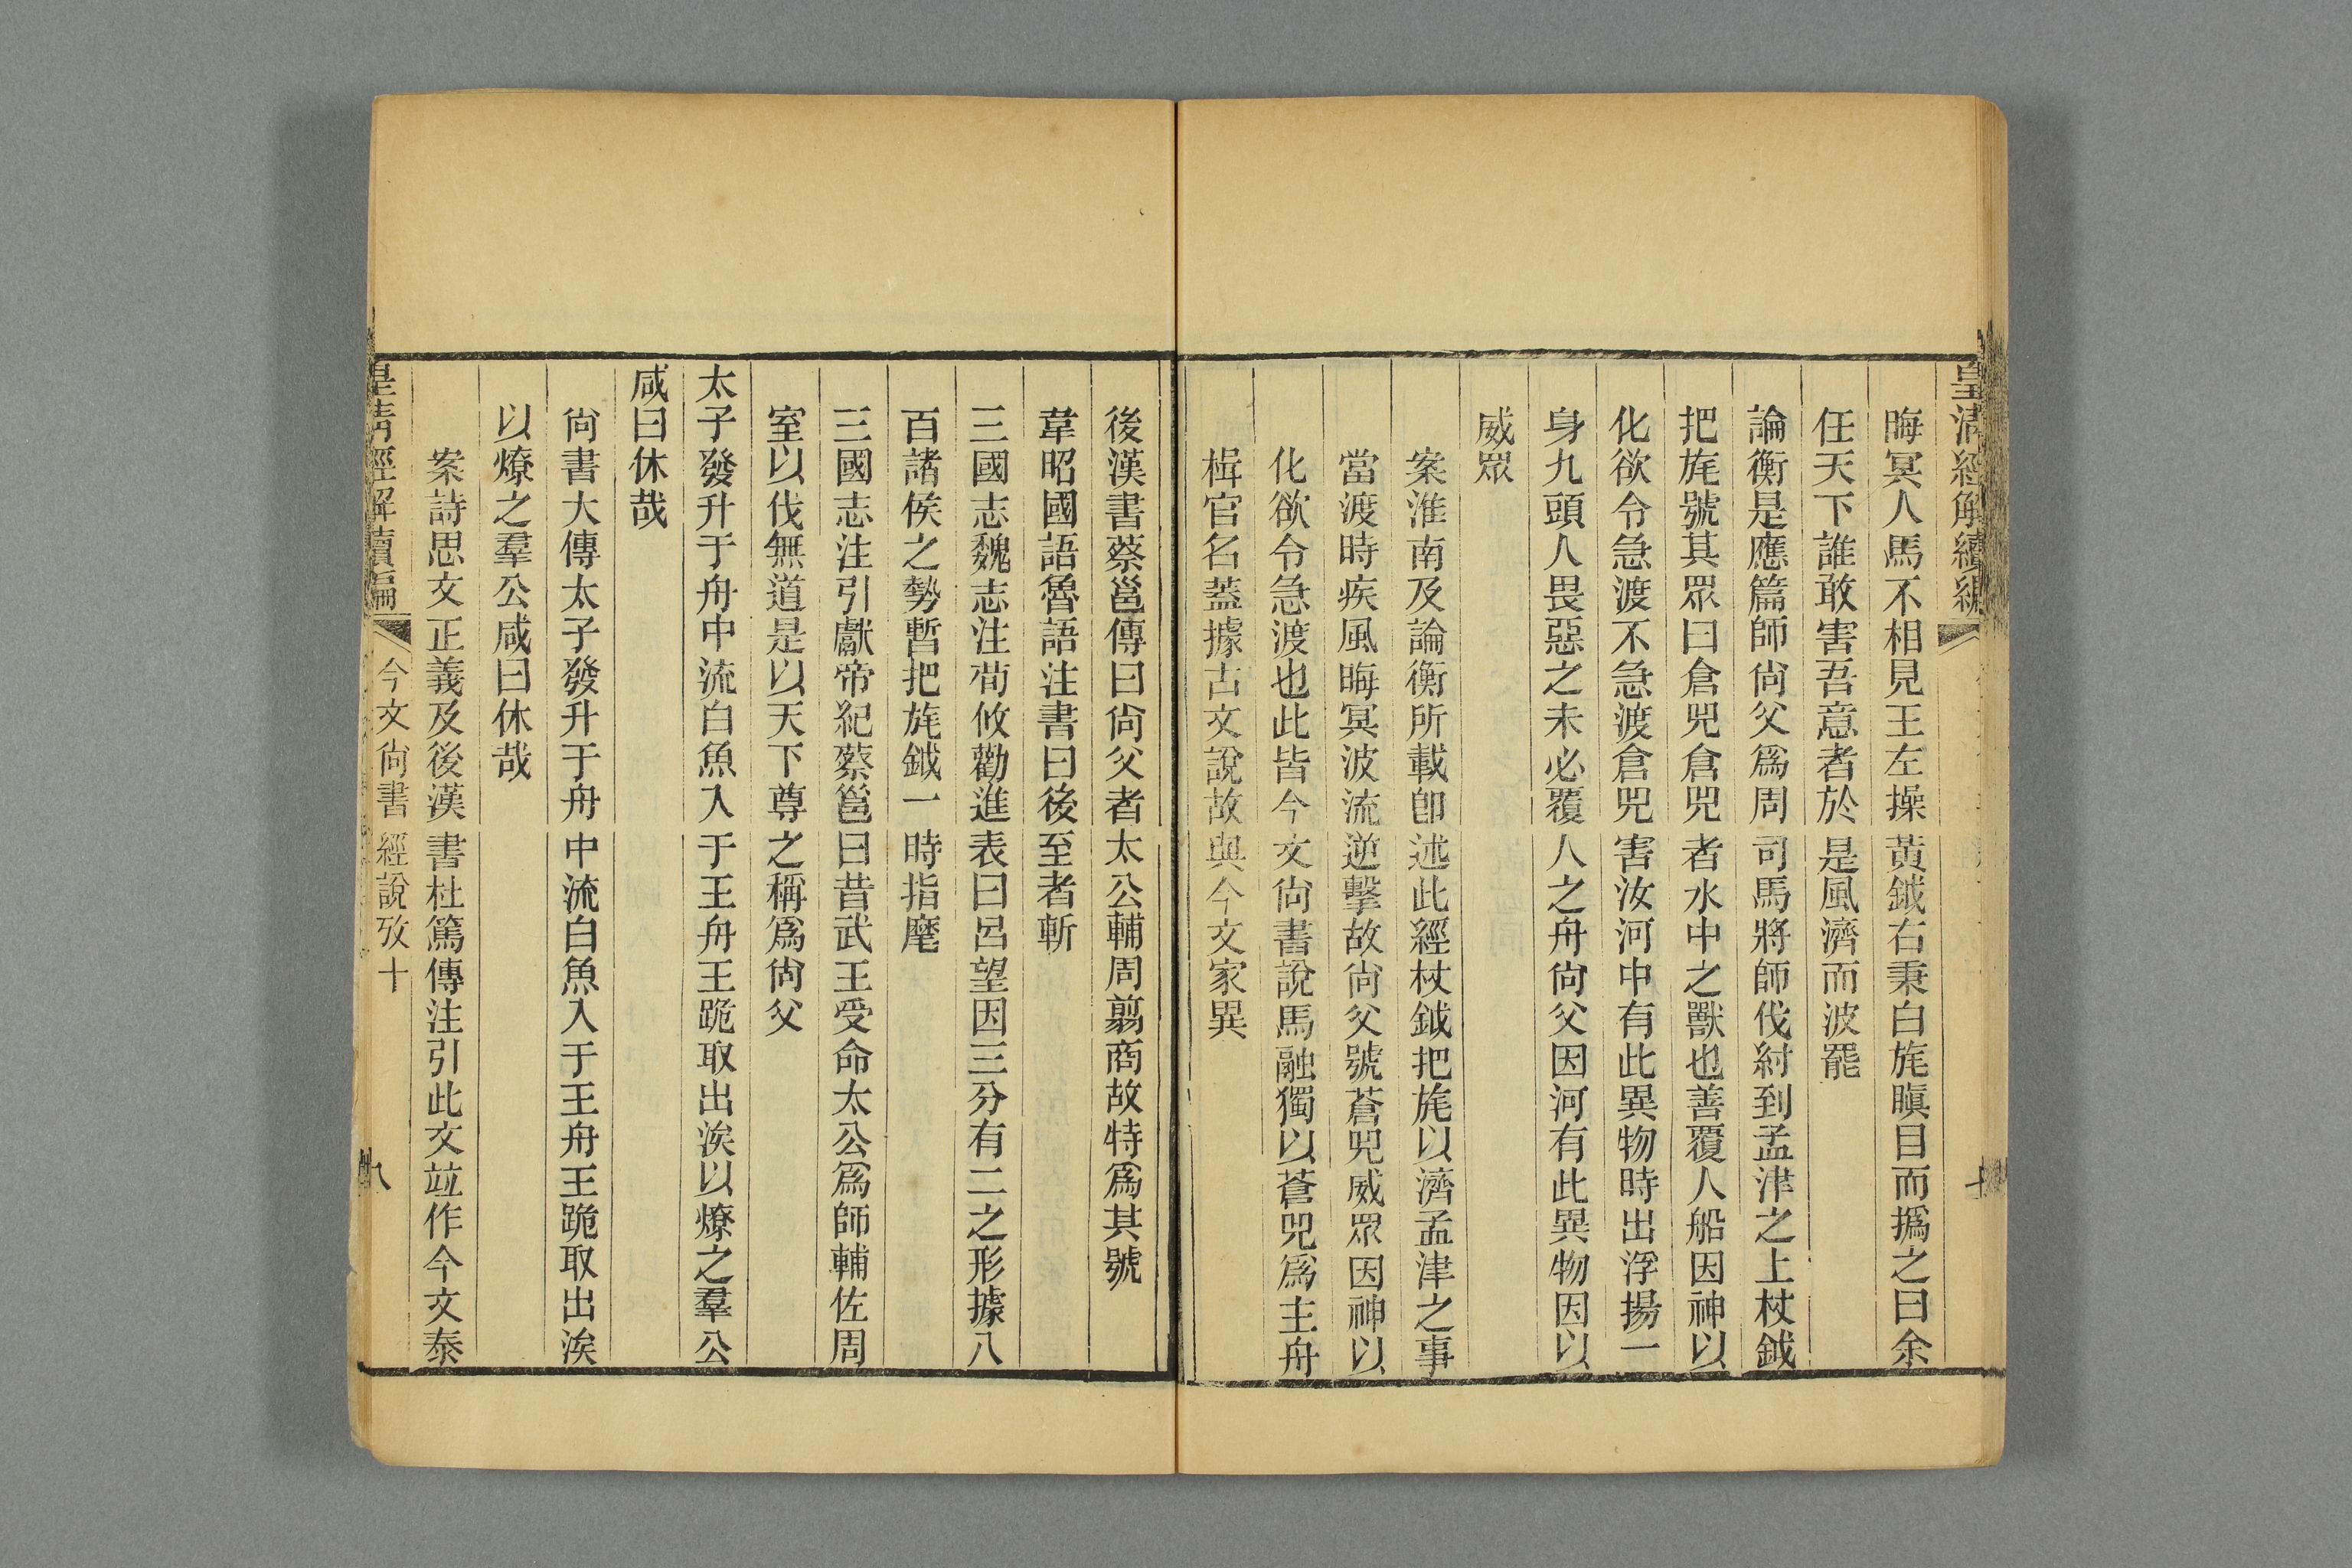 皇清經解續編
晦冥人馬不相見王左操黃鉞右秉白旄瞋目而撝之曰余
任天下誰敢害吾意者於是風濟而波罷
論衡是應篇師尙父爲周司馬將師伐紂到孟津之上杖鉞
把旄號其眾曰倉兕倉兕者水中之獸也善覆人船因神以
化欲令急渡不急渡倉兕害汝河中有此異物時出浮揚一
身九頭人畏惡之未必覆人之舟尙父因河有此異物因以
威眾
案淮南及論衡所載卽述此經杖鉞把旄以濟孟津之事
當渡時疾風晦冥波流逆擊故尙父號蒼兕威眾因神以
化欲令急渡也此皆今文尙書說馬融獨以蒼兕爲主舟
楫官名蓋據古文說故與今文家異
後漢書蔡邕傳曰尙父者太公輔周翦商故特爲其號
韋昭國語魯語注書曰後至者斬
三國志魏志注荀攸勸進表曰呂望因三分有二之形據八
百諸侯之勢暫把旄鉞一時指麾
三國志注引獻帝紀蔡邕曰昔武王受命太公爲師輔佐周
室以伐無道是以天下尊之稱爲尙父
太子發升于舟中流白魚入于王舟王跪取出涘以燎之羣公
咸曰休哉
尙書大傳太子發升于舟中流白魚入于王舟王跪取出涘
以燎之羣公咸曰休哉
案詩思文正義及後漢書杜篤傳注引此文竝作今文泰
皇清經解續編 今文尙書經說攷十 八